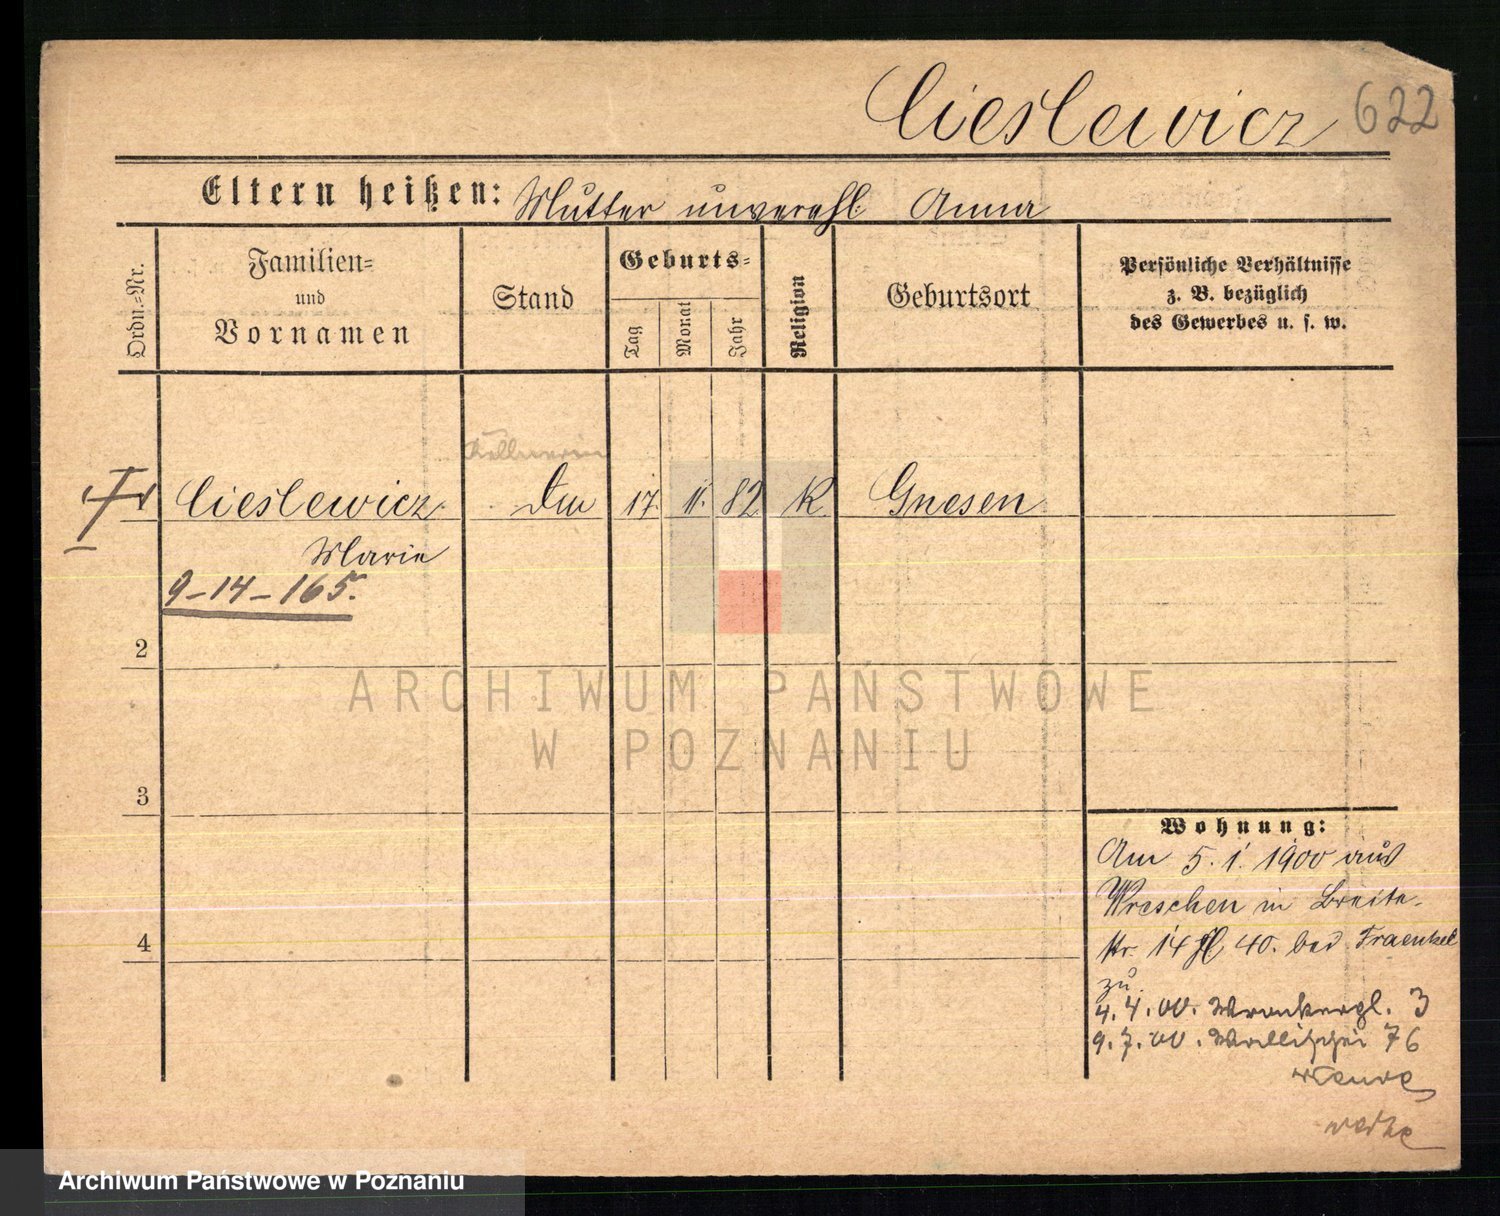 Cieslewicz 622
Eltern heißen: Mutter unverehl. Anna
Ordn.-Nr.
Familien-
und
Vornamen
Stand
Geburts-
Tag
Monat
Jahr
Religion
Geburtsort
Persönliche Verhältnisse
z. B. bezüglich
des Gewerbes u. s. w.
Kellnerin
Cieslewicz 17. 11. 82 K Gnesen
Marie
9-14-165.
2
3
4
Wohnung:
Am 5. 1. 1900 aus
Wreschen in Breite-
str. 14 40. bei Fraenkel
zu.
4. 4. 00. Wronkerpl. 3
9. 7. 00. Wallischei 76
ARCHIWUM PAŃSTWOWE
W POZNANIU
Archiwum Państwowe w Poznaniu